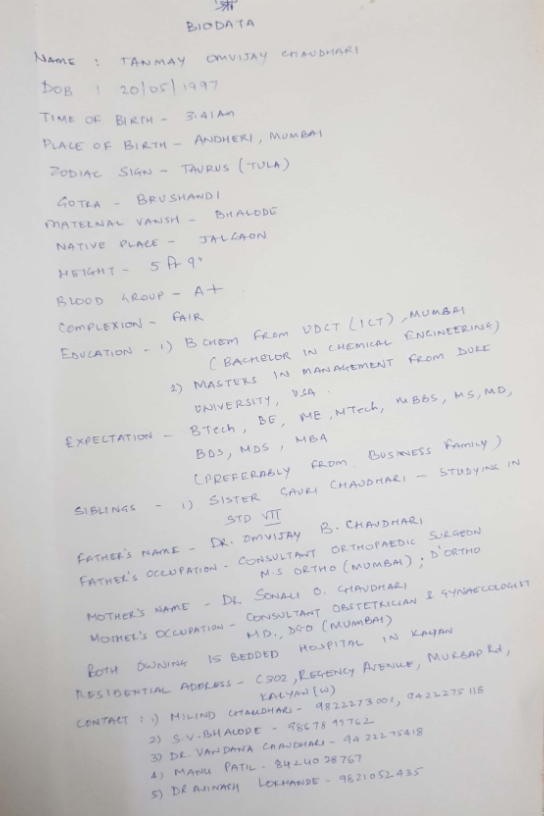 BIODATA
NAME : TANMAY OMVIJAY CHAUDHARI
DOB : 20/05/1997
TIME OF BIRTH - 3.41 Am
PLACE OF BIRTH - ANDHERI, MUMBAI
ZODIAC SIGN - TAURUS (TULA)
GOTRA - BRUSHANDI
MATERNAL VANSH - BHALODE
NATIVE PLACE - JALGAON
HEIGHT - 5 ft 9"
BLOOD GROUP - A+
COMPLEXION - FAIR
EDUCATION - 1) B CHEM FROM UDCT (ICT), MUMBAI
(BACHELOR IN CHEMICAL ENGINEERING)
2) MASTERS IN MANAGEMENT FROM DUKE
UNIVERSITY, USA.
EXPECTATION - BTech, BE, ME, MTech, MBBS, MS, MD,
BDS, MDS, MBA
(PREFERABLY FROM BUSINESS FAMILY)
SIBLINGS - 1) SISTER GAURI CHAUDHARI - STUDYING IN
STD VII
FATHER'S NAME - DR. OMVIJAY B. CHAUDHARI
FATHER'S OCCUPATION - CONSULTANT ORTHOPAEDIC SURGEON
M.S ORTHO (MUMBAI); D'ORTHO
MOTHER'S NAME - DR SONALI O. CHAUDHARI
MOTHER'S OCCUPATION - CONSULTANT OBSTETRICIAN & GYNAECOLOGIST
MD., DGO (MUMBAI)
BOTH OWNING 15 BEDDED HOSPITAL IN KALYAN
RESIDENTIAL ADDRESS - C302, REGENCY AVENUE, MURBAD Rd,
KALYAN (W)
CONTACT : 1) MILIND CHAUDHARI - 9822273001, 9422275118
2) S.V. BHALODE -
3) DR. VANDANA CHAUDHARI - 9422275418
4) MANU PATIL - 8424028767
5) DR AVINASH LOKHANDE - 9821052435